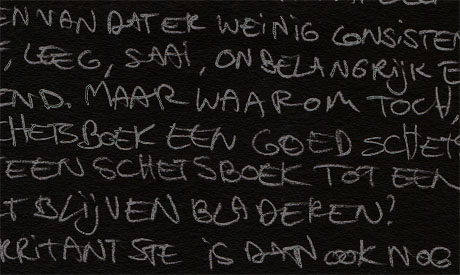 EN VAN DAT ER WEINIG CONSISTEN
, LEEG, SAAI, ONBELANGRIJK E
END. MAAR WAAROM TOCH,
CHETSBOEK EEN GOED SCHETS
EEN SCHETSBOEK TOT EEN
T BLIJVEN BLADEREN?
RRITANTSTE IS DAN OOK NOG